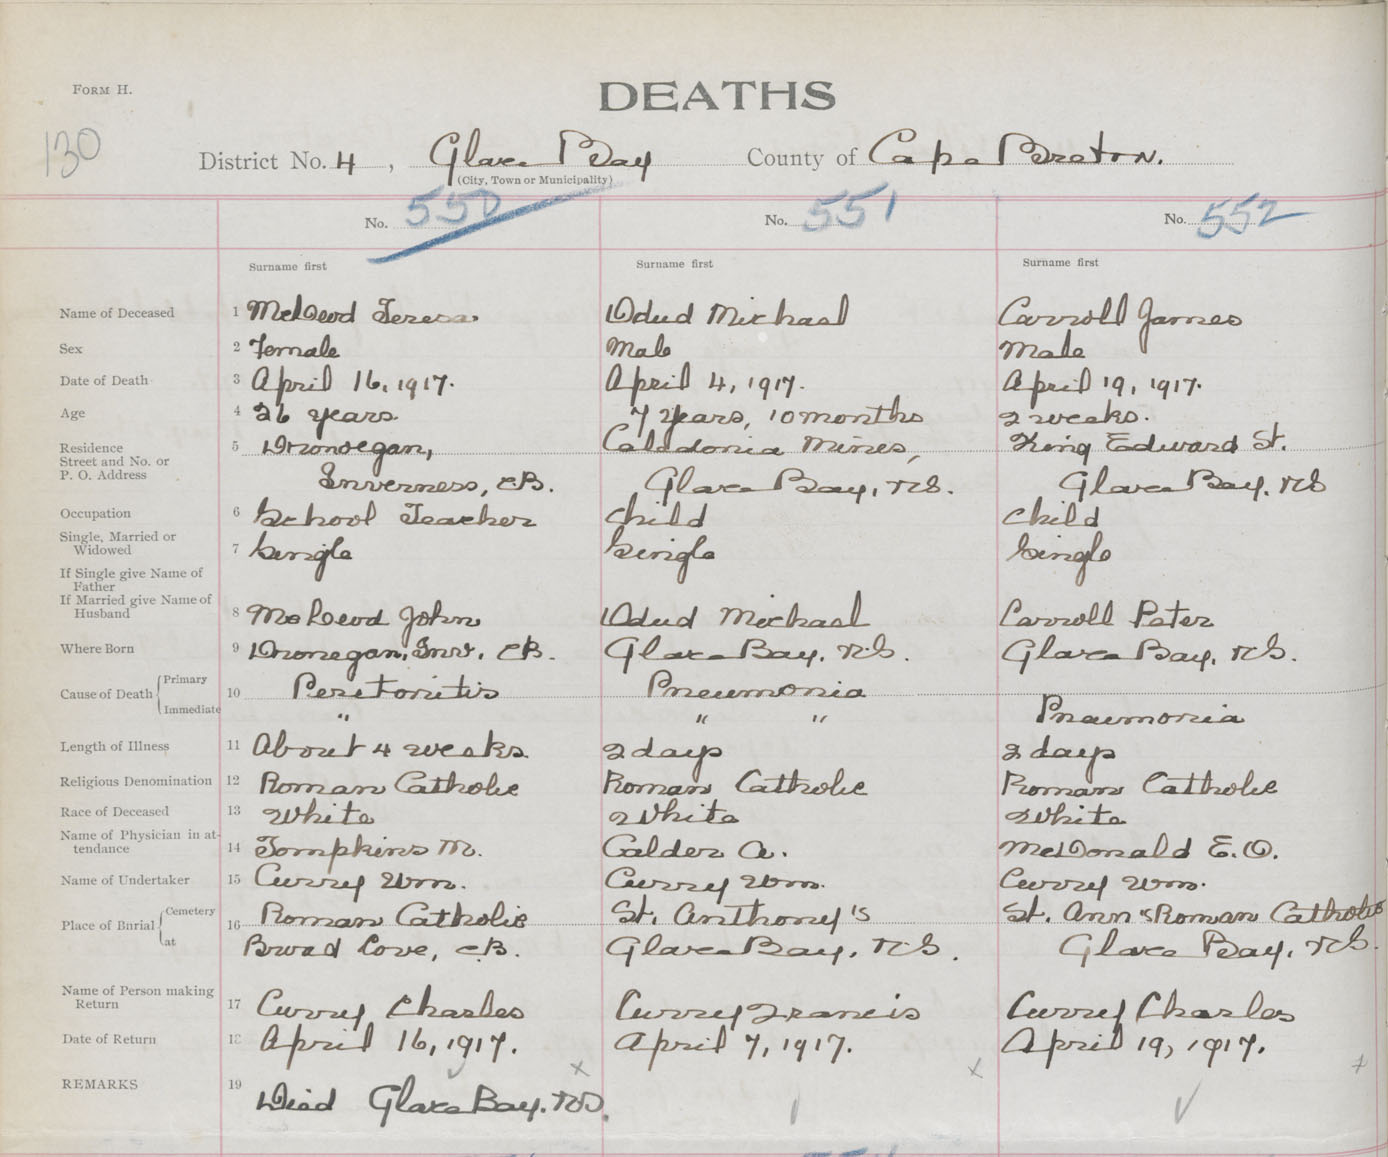 FORM H.
DEATHS
130
District No. 4, Glace Bay County of Cape Breton.
(City, Town or Municipality)
No. 550 No. 551 No. 552
Surname first Surname first Surname first
Name of Deceased 1 McLeod Teresa. Odud Michael Carroll James
Sex 2 Female Male Male
Date of Death 3 April 16, 1917. April 4, 1917. April 19, 1917.
Age 4 26 years. 7 years, 10 months 2 weeks.
Residence 5 Dronoegan, Caledonia Mines, King Edward St.
Street and No. or
P. O. Address Inverness, CB. Glace Bay, NS. Glace Bay, NS
Occupation 6 School Teacher Child Child
Single, Married or
Widowed 7 Single Single Single
If Single give Name of
Father
If Married give Name of
Husband 8 McLeod John Odud Michael Carroll Peter
Where Born 9 Dronegan, Inv. CB. Glace Bay, N.S. Glace Bay, NS.
Cause of Death Primary 10 Peritonitis Pneumonia
Immediate " " " Pneumonia
Length of Illness 11 About 4 weeks. 2 days 2 days
Religious Denomination 12 Roman Catholic Roman Catholic Roman Catholic
Race of Deceased 13 White White White
Name of Physician in at-
tendance 14 Tompkins M. Calder A. McDonald E.O.
Name of Undertaker 15 Curry Wm. Curry Wm. Curry Wm.
Place of Burial Cemetery 16 Roman Catholic St. Anthony's St. Ann's Roman Catholic
at Broad Cove, CB. Glace Bay, N.S. Glace Bay, NS.
Name of Person making
Return 17 Curry Charles Curry Francis Curry Charles
Date of Return 18 April 16, 1917. April 7, 1917. April 19, 1917.
REMARKS 19 Died Glace Bay. NS.